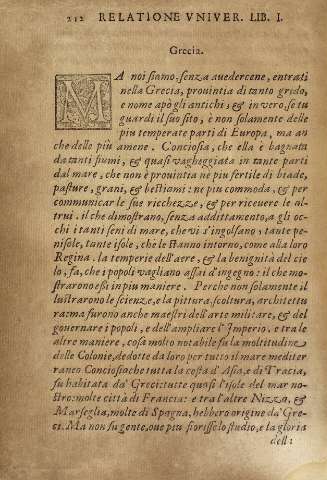 212 RELATIONE VNIVER. LIB. I.
Grecia.
MA noi siamo, senza auedercene, entrati
nella Grecia, prouintia di tanto grido,
e nome apò gli antichi, & in vero, se tu
guardi il suo sito, è non solamente delle
piu temperate parti di Europa, ma an
che delle più amene. Conciosia, che ella è bagnata
da tanti fiumi, & quasi vagheggiata in tante parti
dal mare, che non è prouintia ne piu fertile di biade,
pasture, grani, & bestiomi: ne piu commoda, & per
communicar le sue ricchezze, & per riceuere le al-
trui. il che dimostrano, senza additamento, a gli oc-
chi i tanti seni di mare, che vi s'ingolfano, tante pe-
nisole, tante isole, che le stanno intorno, come alla loro
Regina. la temperie dell'aere, & la benignità del cie
lo, fa, che i popoli vagliano assai d'ingegno: il che mo-
strarono essi in piu maniere. Perche non solamente il
lustrarono le scienze, e la pittura, scoltura, architettu
ra: ma furono anche maestri dell'arte militare, & del
gouernare i popoli, e dell'ampliare l'Imperio. e tra le
altre maniere, cosa molto notabile fu la moltitudine
delle Colonie, dedotte da loro per tutto il mare mediter
raneo Conciosioche tutta la costa d'Asia, e di Tracia,
fu habitata da' Greci: tutte quasi l'isole del mar no-
stro: molte città di Francia: e tra l'altre Nizza, &
Marseglia, molte di Spagna, hebbero origine da' Gre-
ci. Ma non fu gente, oue piu fiorisse lo studio, e la gloria
dell: